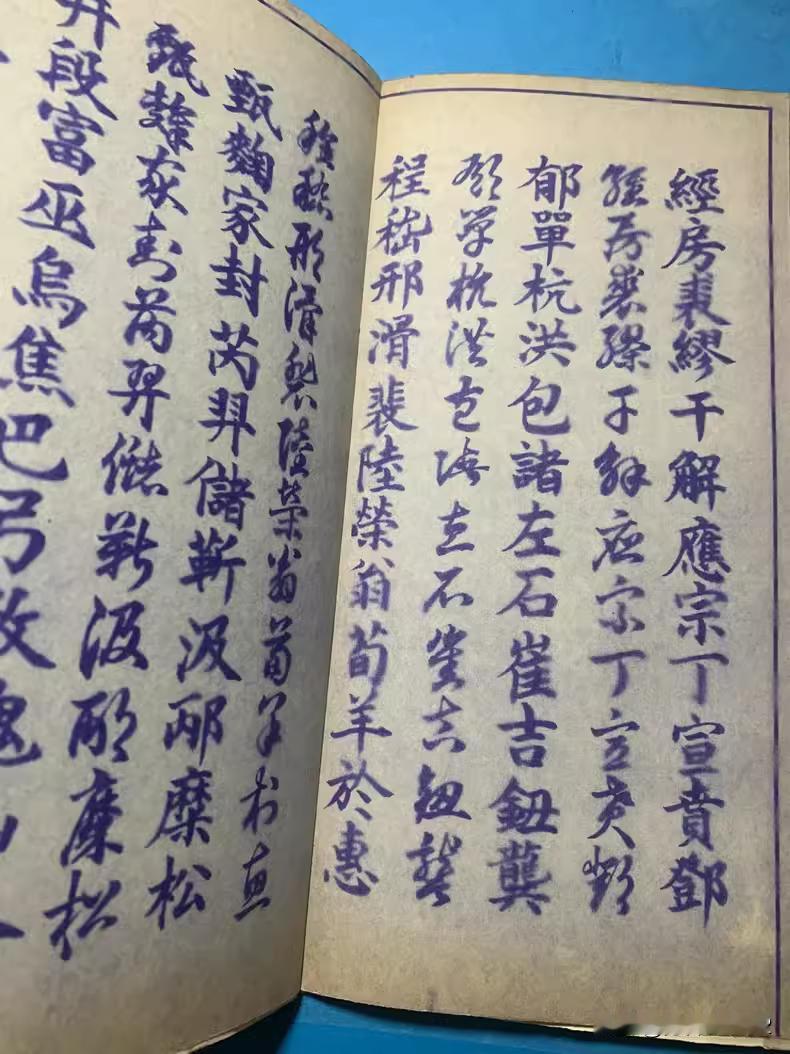 經房裘繆干解應宗丁宣賁鄧
經房裘繆干解應宗丁宣賁鄧
郁單杭洪包諸左石崔吉鈕龔
郁單杭洪包諸左石崔吉鈕龔
程嵇邢滑裴陸榮翁荀羊於惠
程嵇邢滑裴陸榮翁荀羊於惠
甄麴家封芮羿儲靳汲邴糜松
甄麴家封芮羿儲靳汲邴糜松
井段富巫烏焦巴弓牧隗山